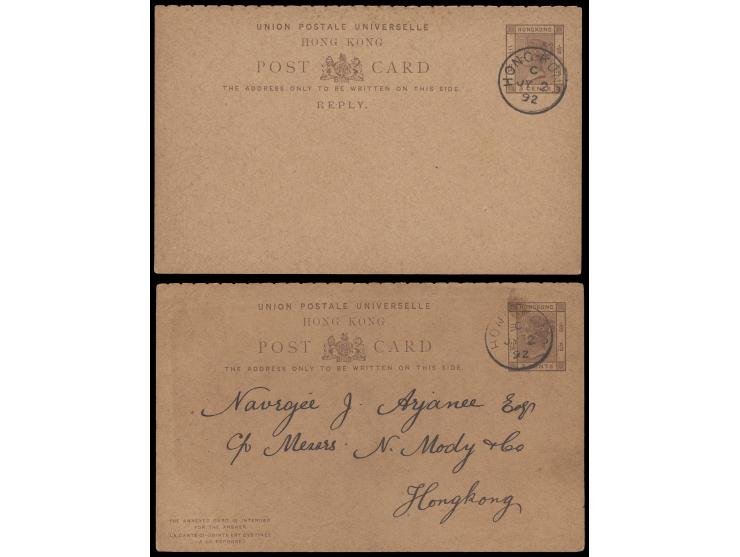 UNION POSTALE UNIVERSELLE
HONG KONG
POST CARD
THE ADDRESS ONLY TO BE WRITTEN ON THIS SIDE.
REPLY.
HONGKONG
3 CENTS
HONG-KONG
C
JY 2
92
UNION POSTALE UNIVERSELLE
HONG KONG
POST CARD
THE ADDRESS ONLY TO BE WRITTEN ON THIS SIDE.
HONGKONG
3 CENTS
C
2
92
Navrojee J. Arjanee Esqr
C/o Messrs. N. Mody & Co
Hongkong
THE ANNEXED CARD IS INTENDED
FOR THE ANSWER.
(LA CARTE CI-JOINTE EST DESTINÉE
A LA RÉPONSE)